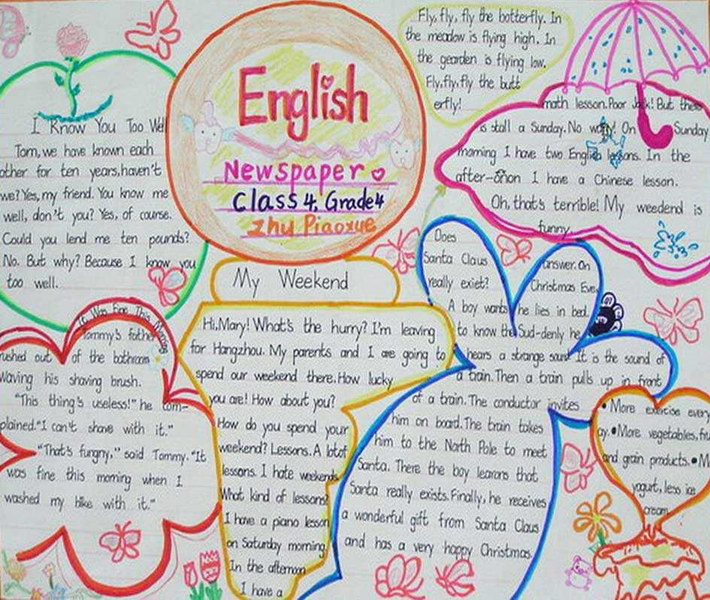 English
Newspaper
Class 4. Grade 4
Zhu Piaoxue
I Know You Too Well
Tom, we have known each
other for ten years, haven't
we? Yes, my friend. You know me
well, don't you? Yes, of course.
Could you lend me ten pounds?
No. But why? Because I know you
too well.
It Was Fine This Morning
Tommy's father
rushed out of the bathroom
waving his shaving brush.
"This thing's useless!" he com-
plained. "I can't shave with it."
"That's fungny," said Tommy. "It
was fine this morning when I
washed my bike with it."
My Weekend
Hi, Mary! What's the hurry? I'm leaving
for Hangzhou. My parents and I are going to
spend our weekend there. How lucky
you are! How about you?
How do you spend your
weekend? Lessons. A lot of
lessons. I hate weekends
What kind of lessons?
I have a piano lesson
on Saturday morning.
In the afternoon
I have a
math lesson. Poor Jack! But there
is stall a Sunday. No worry! On Sunday
morning I have two English lessons. In the
after-onon I have a Chinese lesson.
Oh, that's terrible! My weedend is
funny.
Fly, fly, fly the botterfly. In
the meadow is flying high. In
the gearden is flying low.
Fly, fly, fly the butt
erfly!
Does
Santa Claus
really exiet?
A boy wants
to know the
answer. On
Christmas Eve,
he lies in bed.
Sud-denly he
hears a strange It is the sound of
a train. Then a train pulls up in front
of a train. The conductor invites
him on board. The train takes
him to the North Pole to meet
Santa. There the boy learons that
Santa really exists. Finally, he receives
a wonderful gift from Santa Claus
and has a very happy Christmas.
• More exercise every
ay. • More vegetables, fru
and grain products. • M
yogurt, less ice
cream.